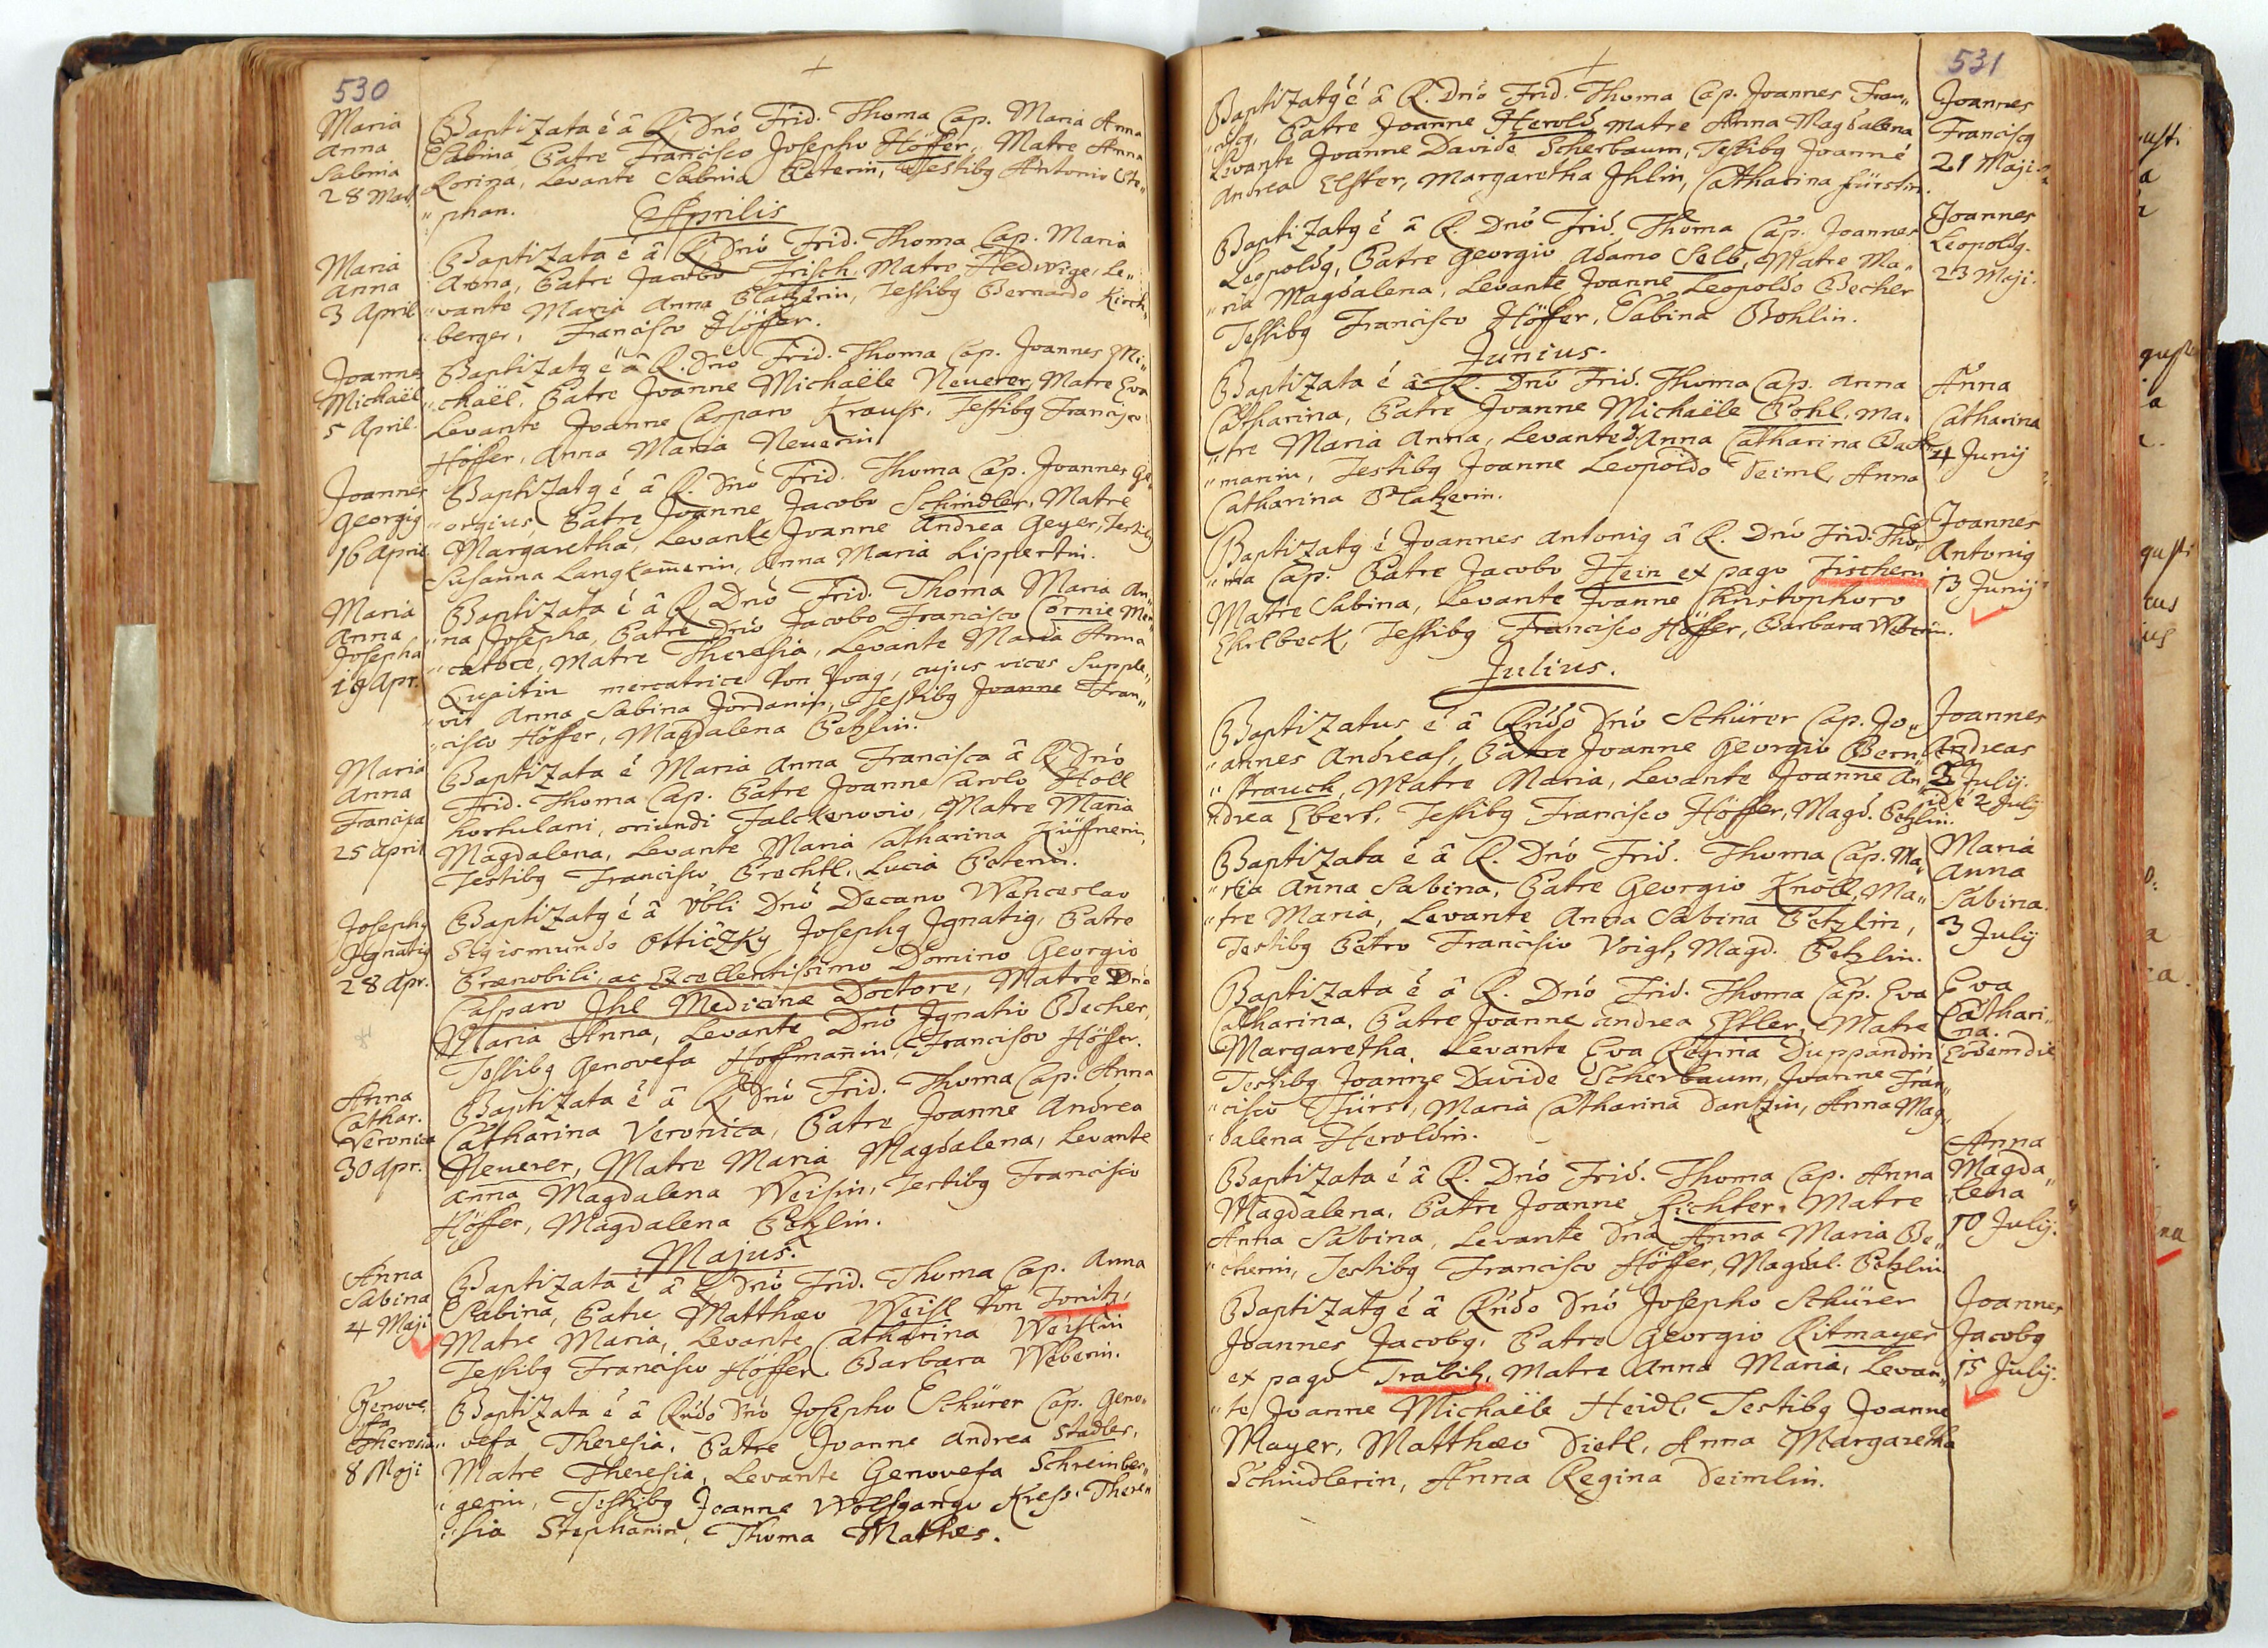 530
Maria
Anna
Sabina
28 Mart.
Baptizata é â R. Dnó Frid. Thoma Cap. Maria Anna
Sabina Patre Francisco Josepho Höffer, Matre Anna
Rosina, Levante Sabina Peterin, Testibg Antonio Ste„
„phan.
Aprilis
Maria
Anna
3 April
Baptizata é â R. Dnó Frid. Thoma Cap. Maria
Anna, Patre Jacobo Frisch, Matre Hedwige, Le„
„vante Maria Anna Platzerin, Testibg Bernardo Kirch„
„berger, Francisco Höffer.
Joannes
Michaël
5 April.
Baptizatg é â R. Dnó Frid. Thoma Cap. Joannes Mi„
„chaël, Patre Joanne Michaële Neuerer, Matre Eva
Levante Joanne Casparo Krauss, Testibg Francisco
Höffer, Anna Maria Neuerin
Joannes
Georgig
16 April
Baptizatg é â R. Dnó Frid. Thoma Cap. Joannes Ge„
„orgius, Patre Joanne Jacobo Schindler, Matre
Margaretha, Levante Joanne Andrea Geyer, Testibg
Susanna Langkam̄erin, Anna Maria Lippertin.
Maria
Anna
Josepha
19 Apr.
Baptizata é â R. Dnó Frid. Thoma Maria An„
„na Josepha, Patre Dnó Jacobo Francisco Cornie Mer„
„catore, Matre Theresia, Levante Maria Anna
mercatrice von Prag, cujus vices Supple„
„vit Anna Sabina Jordanin, Testibg Joanne Fran„
„cisco Höffer, Magdalena Petzlin.
Maria
Anna
Francisca
25 April
Baptizata é Maria Anna Francisca â R. Dnó
Frid. Thoma Cap. Patre Joanne Carolo Höll
hortulani, oriundi Falckenovio, Matre Maria
Magdalena, Levante Maria Catharina Züffnerin,
Testibg Francisco Brechtl, Lucia Peterin.
Josephg
Ignatig
28 Apr.
Baptizatg é â Vbli Dnó Decano Wenceslao
Sigismundo Otticzky Josephg Ignatig, Patre
Prænobili, ac Excellentissimo Domino Georgio
Casparo Ihl Medicinæ Doctore, Matre Dnâ
Maria Anna, Levante Dnó Ignatio Becher,
Testibg Genovefa Hoffman̄in, Francisco Höffer.
Anna
Cathar.
Veronica
30 Apr.
Baptizata é â R. Dnó Frid. Thoma Cap. Anna
Catharina Veronica, Patre Joanne Andrea
Neuerer, Matre Maria Magdalena, Levante
Anna Magdalena Weisin, Testibg Francisco
Höffer, Magdalena Petzlin.
Majus.
Anna
Sabina
4 Maji
Baptizata é â R. Dnó Frid. Thoma Cap. Anna
Sabina, Patre Matthæo Weisl von Fonitz,
Matre Maria, Levante Catharina Weislin
Testibg Francisco Höffer, Barbara Weberin.
Genove„
„fa
Theresia
8 Maji
Baptizata é â Rndo Dnó Josepho Schürer Cap. Geno„
„vefa Theresia, Patre Joanne Andrea Stadler,
Matre Theresia, Levante Genovefa Schreinber„
„gerin, Testibg Joanne Wolfgango Kress, There„
„sia Stephanin, Thoma Mathes.
531
Baptizatg é â R. Dnó Frid. Thoma Cap. Joannes Fran„
„ciscg, Patre Joanne Herold, Matre Anna Magdalena
Levante Joanne Davide Scherbaum, Testibg Joanne
Andrea Elster, Margaretha Ihlin, Catharina Fürstin.
Joannes
Franciscg
21 Maji
Baptizatg é â R. Dnó Frid. Thoma Cap. Joannes
Leopoldg, Patre Georgio Adamo Selb, Matre Ma„
„ria Magdalena, Levante Joanne Leopoldo Becher
Testibg Francisco Höffer, Sabina Bohlin.
Joannes
Leopoldg.
23 Maji.
Junius.
Baptizata é â R. Dnó Frid. Thoma Cap. Anna
Catharina, Patre Joanne Michaële Pohl, Ma„
„tre Maria Anna, Levante Anna Catharina
„manin, Testibg Joanne Leopoldo Deiml, Anna
Catharina Platzerin.
Anna
Catharina
4 Junij
Baptizatg é Joannes Antonig â R. Dnó Frid. Tho„
„ma Cap. Patre Jacobo Hein ex pago Fischern
Matre Sabina, Levante Joanne Christophoro
Ehrlbeck, Testibg Francisco Höffer, Barbara Weberin.
Joannes
Antonig
13 Junij
Julius.
Baptizatus é â Rndo Dnó Schürer Cap. Jo„
„annes Andreas, Patre Joanne Georgio Bern„
„strauch, Matre Maria, Levante Joanne An„
drea Ebert, Testibg Francisco Höffer, Magd. Petzlin.
Joannes
Andreas
2 Julij.
id é 2 Julij
Baptizata é â R. Dnó Frid. Thoma Cap. Ma„
„ria Anna Sabina, Patre Georgio Knoll, Ma„
„tre Maria, Levante Anna Sabina Petzlin,
Testibg Petro Francisco Voigt, Magd. Petzlin.
Maria
Anna
Sabina.
3 Julij
Baptizata é â R. Dnó Frid. Thoma Cap. Eva
Catharina, Patre Joanne Andrea Elstler, Matre
Margaretha, Levante Eva Regina Duppandin
Testibg Joanne Davide Scherbaum, Joanne Fran„
„cisco Fürst, Maria Catharina Dantzin, Anna Mag„
„dalena Heroldin.
Eva
Cathari„
na.
Eodem die
Baptizata é â R. Dnó Frid. Thoma Cap. Anna
Magdalena, Patre Joanne Richter, Matre
Anna Sabina, Levante Dnâ Anna Maria Be„
„cherin, Testibg Francisco Höffer, Magdal. Petzlin
Anna
Magda„
„lena
10 Julij.
Baptizatg é â Rndo Dnó Josepho Schürer
Joannes Jacobg, Patre Georgio Ritmayer
ex pago Trabitz, Matre Anna Maria, Levan„
„te Joanne Michaële Heidl, Testibg Joanne
Mayer, Matthæo Dietl, Anna Margaretha
Schindlerin, Anna Regina Deimlin.
Joannes
Jacobg
15 Julij.